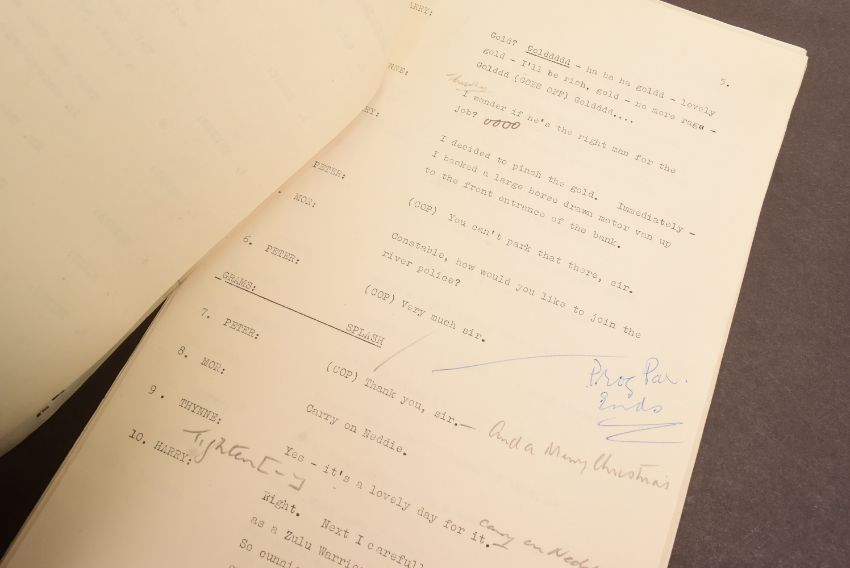 5.
ARRY:
Gold? Golddddd - ha ha ha goldd - lovely
gold - I'll be rich, gold - no more rags -
Golddd (GOES OFF) Goldddd....
I wonder if he's the right man for the
job? oooo
I decided to pinch the gold. Immediately -
I backed a large horse drawn motor van up
to the front entrance of the bank.
PETER:
MOR:
(COP) You can't park that there, sir.
6. PETER:
Constable, how would you like to join the
river police?
(COP) Very much sir.
GRAMS:
SPLASH
7. PETER:
(COP) Thank you, sir. — And a Merry Christmas
Prog Par.
Ends
8. MOR:
Carry on Neddie.
9. THYNNE:
Yes - it's a lovely day for it.
Carry on Nedd
10. HARRY:
Tighten [-]
Right. Next I carefull
as a Zulu Warrio
So cunni